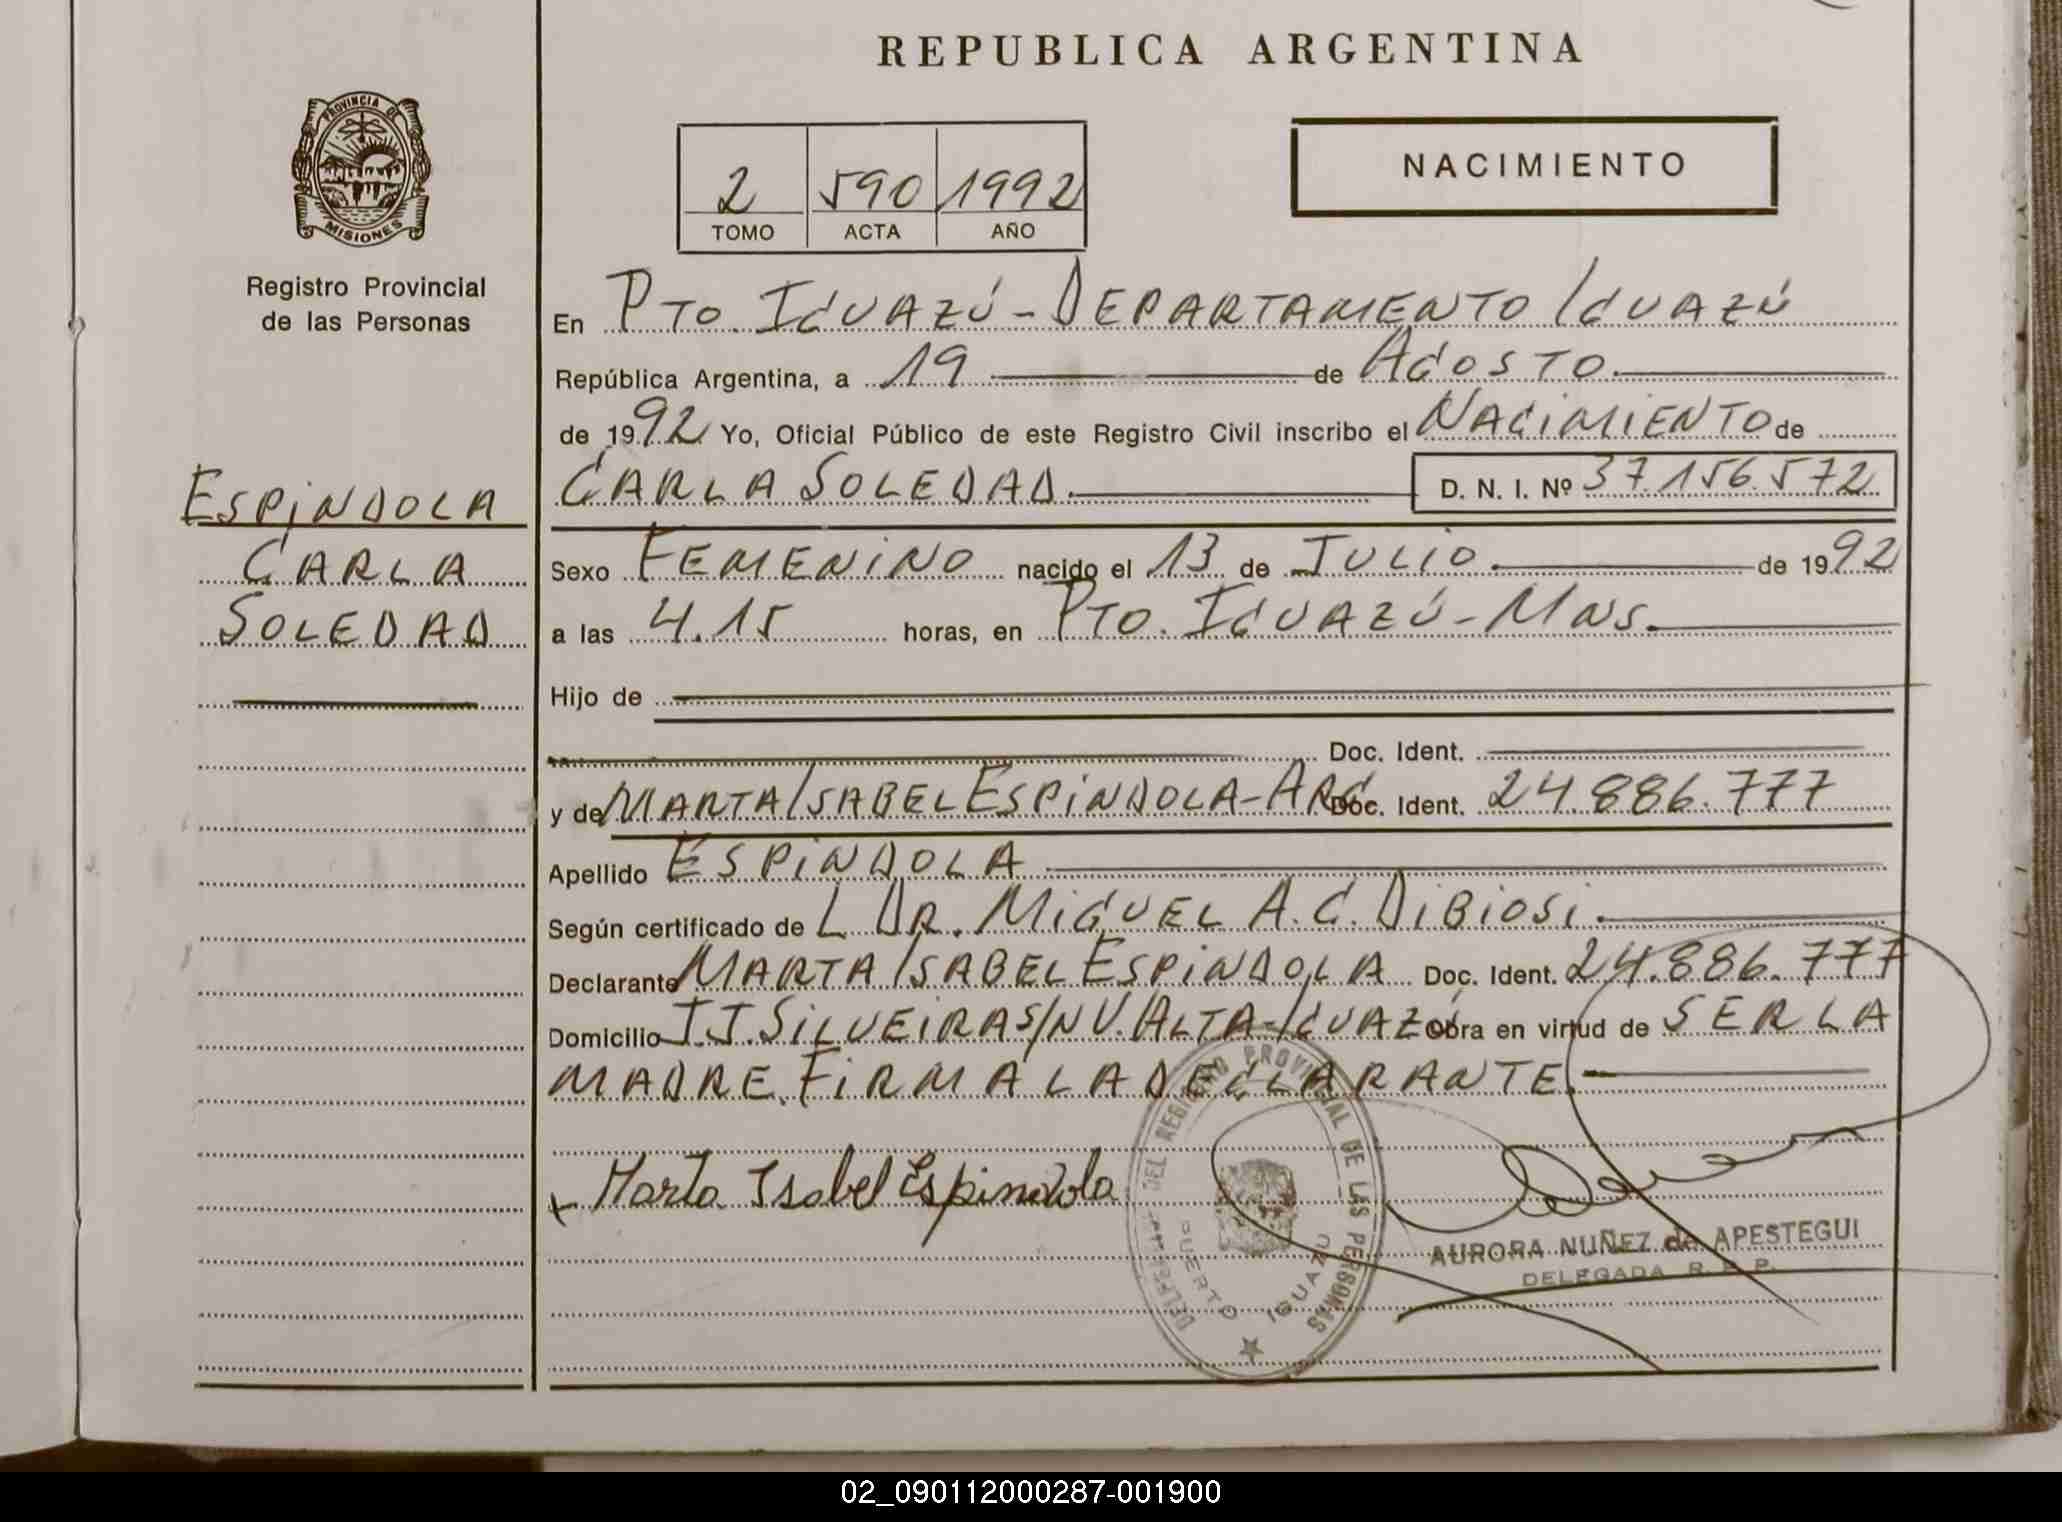 REPUBLICA ARGENTINA
PROVINCIA DE
MISIONES
Registro Provincial
de las Personas
NACIMIENTO
2 590 1992
TOMO ACTA AÑO
En PTO. IGUAZÚ - DEPARTAMENTO IGUAZÚ
República Argentina, a 19 de AGOSTO.
de 1992 Yo, Oficial Público de este Registro Civil inscribo el NACIMIENTO de
CARLA SOLEDAD. D. N. I. Nº 37.156.572
ESPINDOLA
CARLA
SOLEDAD
Sexo FEMENINO nacido el 13 de JULIO. de 1992
a las 4.15 horas, en PTO. IGUAZÚ - MNS.
Hijo de
Doc. Ident.
y de MARTA ISABEL ESPINDOLA - ARG Doc. Ident. 24.886.777
Apellido ESPINDOLA
Según certificado de L DR. MIGUEL A. C. DIBIOSI.
Declarante MARTA ISABEL ESPINDOLA Doc. Ident. 24.886.777
Domicilio J.J. SILVEIRA S/N V. ALTA - IGUAZÚ Obra en virtud de SER LA
MADRE. FIRMA LA DECLARANTE.
x Marta Isabel Espindola
DEL REGISTRO PROVINCIAL DE LAS PERSONAS
PUERTO IGUAZU
AURORA NUÑEZ de APESTEGUI
DELEGADA R. P. P.
02_090112000287-001900